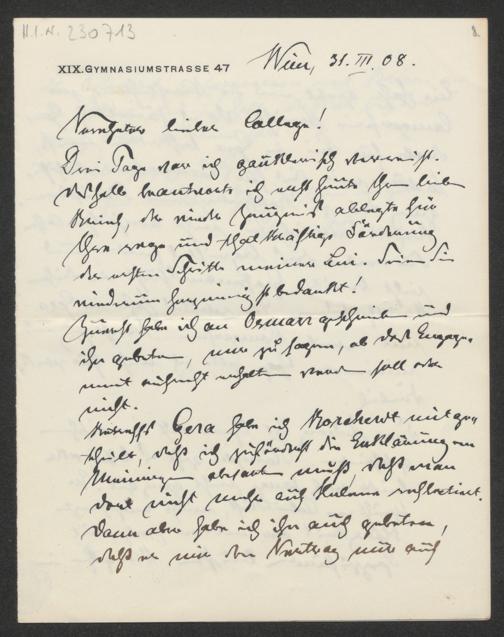 H.I.N. 230713
1
XIX. GYMNASIUMSTRASSE 47
Wien, 31. III. 08.
Verehrter lieber College!
Drei Tage war ich verreist.
Deßhalb beantworte ich erst heute Ihren lieben
Brief, der wieder Zeugniß ablegte für
Ihre rege und thatkräftige Förderung
der ersten Schritte meiner Lui. Seien Sie
wiederum herzinnigst bedankt!
Zuerst habe ich an geschrieben und
ihn gebeten, mir zu sagen, ob das Engage-
ment aufrecht erhalten werden soll oder
nicht.
Betreffs Gera habe ich Borcherdt mitge-
theilt, daß ich zuvörderst die Erklärung von
abwarten muß, daß man
dort nicht mehr auf reflectirt.
Dann aber habe ich ihn auch gebeten,
daß er mir den Vertrag nur auf